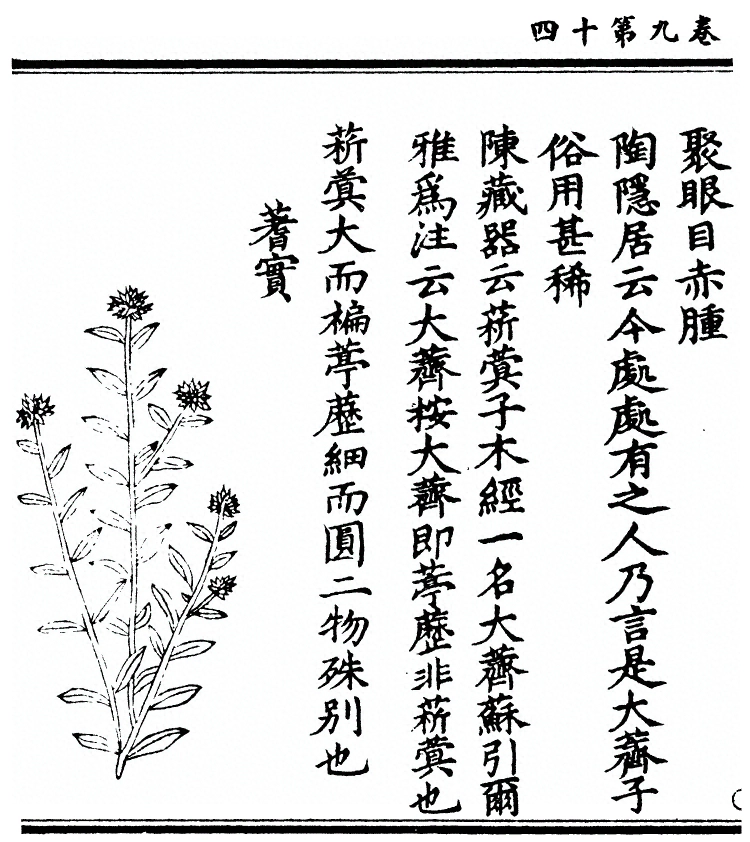 卷九第十四
聚眼目赤腫
陶隱居云今處處有之人乃言是大薺子
俗用甚稀
陳藏器云菥蓂子木經一名大薺蘇引爾
雅爲注云大薺按大薺即葶藶非菥蓂也
菥蓂大而褊葶藶細而圓二物殊別也
蓍實